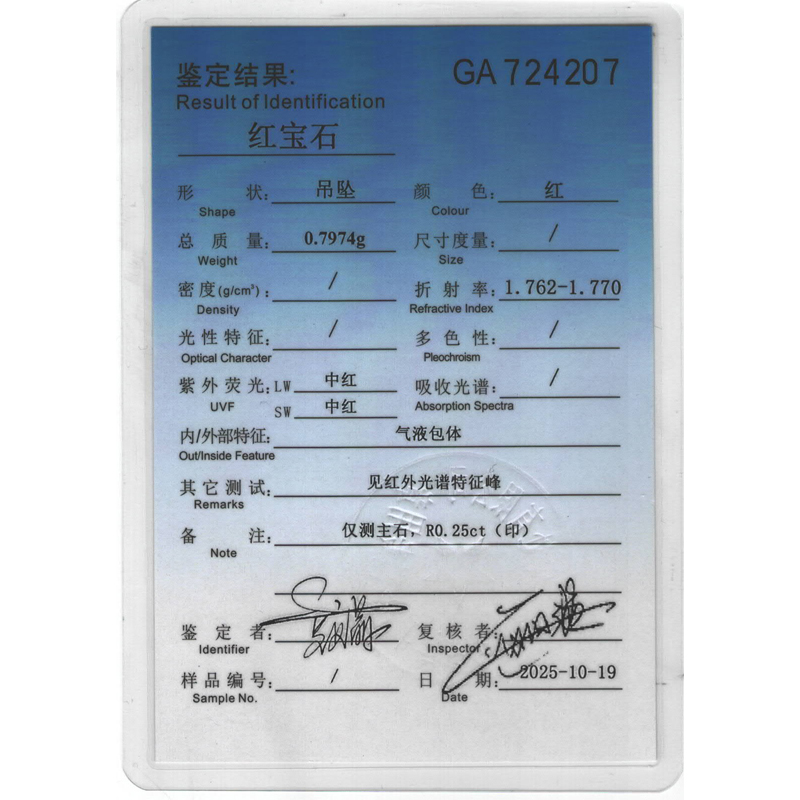 鉴定结果: GA 724207
Result of Identification
红宝石
形 状: 吊坠 颜 色: 红
Shape Colour
总 质 量: 0.7974g 尺寸度量: /
Weight Size
密度(g/cm³): / 折 射 率: 1.762-1.770
Density Refractive Index
光性特征: / 多 色 性: /
Optical Character Pleochroism
紫外荧光: LW 中红 吸收光谱: /
UVF SW 中红 Absorption Spectra
内/外部特征: 气液包体
Out/Inside Feature
其它测试: 见红外光谱特征峰
Remarks
备 注: 仅测主石, R0.25ct (印)
Note
鉴 定 者: 复 核 者:
Identifier Inspector
样品编号: / 日 期: 2025-10-19
Sample No. Date